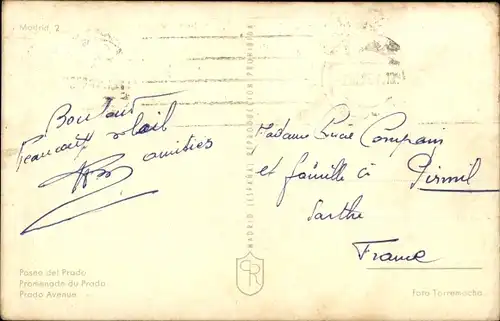 Madrid, 2
Beaucoup soleil
amitiés
Madame Lucie Compain
et famille à Pirmil
Sarthe
France
MADRID (ESPAÑA) REPRODUCCION PROHIBIDA
Paseo del Prado
Promenade du Prado
Prado Avenue
Foto Torremocha